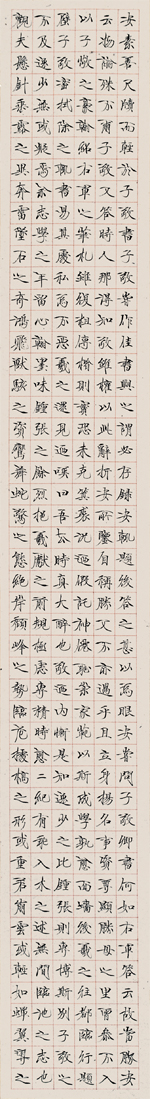 安素善尺牘而輕子敬之書子敬嘗作佳書與之謂必存錄安輒題後答之甚以為恨安嘗問敬卿書何如右軍答云故當勝安
云物論殊不爾子敬又答時人那得知敬雖權以此辭折安所鑒自稱勝父不亦過乎且立身揚名事資尊顯勝母之里曾參不入
以子敬之豪翰紹右軍之筆札雖復粗傳楷則實恐未克箕裘況乃假託神仙恥崇家範以斯成學孰愈面牆後羲之往都臨行題
壁子敬密拭除之輒書易其處私為不惡羲之還見乃歎曰吾去時真大醉也敬乃內慚是知逸少之比鍾張則專博斯別子敬之
不及逸少無或疑焉余志學之年留心翰墨味鍾張之餘烈挹羲獻之前規極慮專精時逾二紀有乖入木之術無間臨池之志也
觀夫懸針垂露之異奔雷墜石之奇鴻飛獸駭之資鸞舞蛇驚之態絕岸頹峰之勢臨危據槁之形或重若崩雲或輕如蟬翼導之